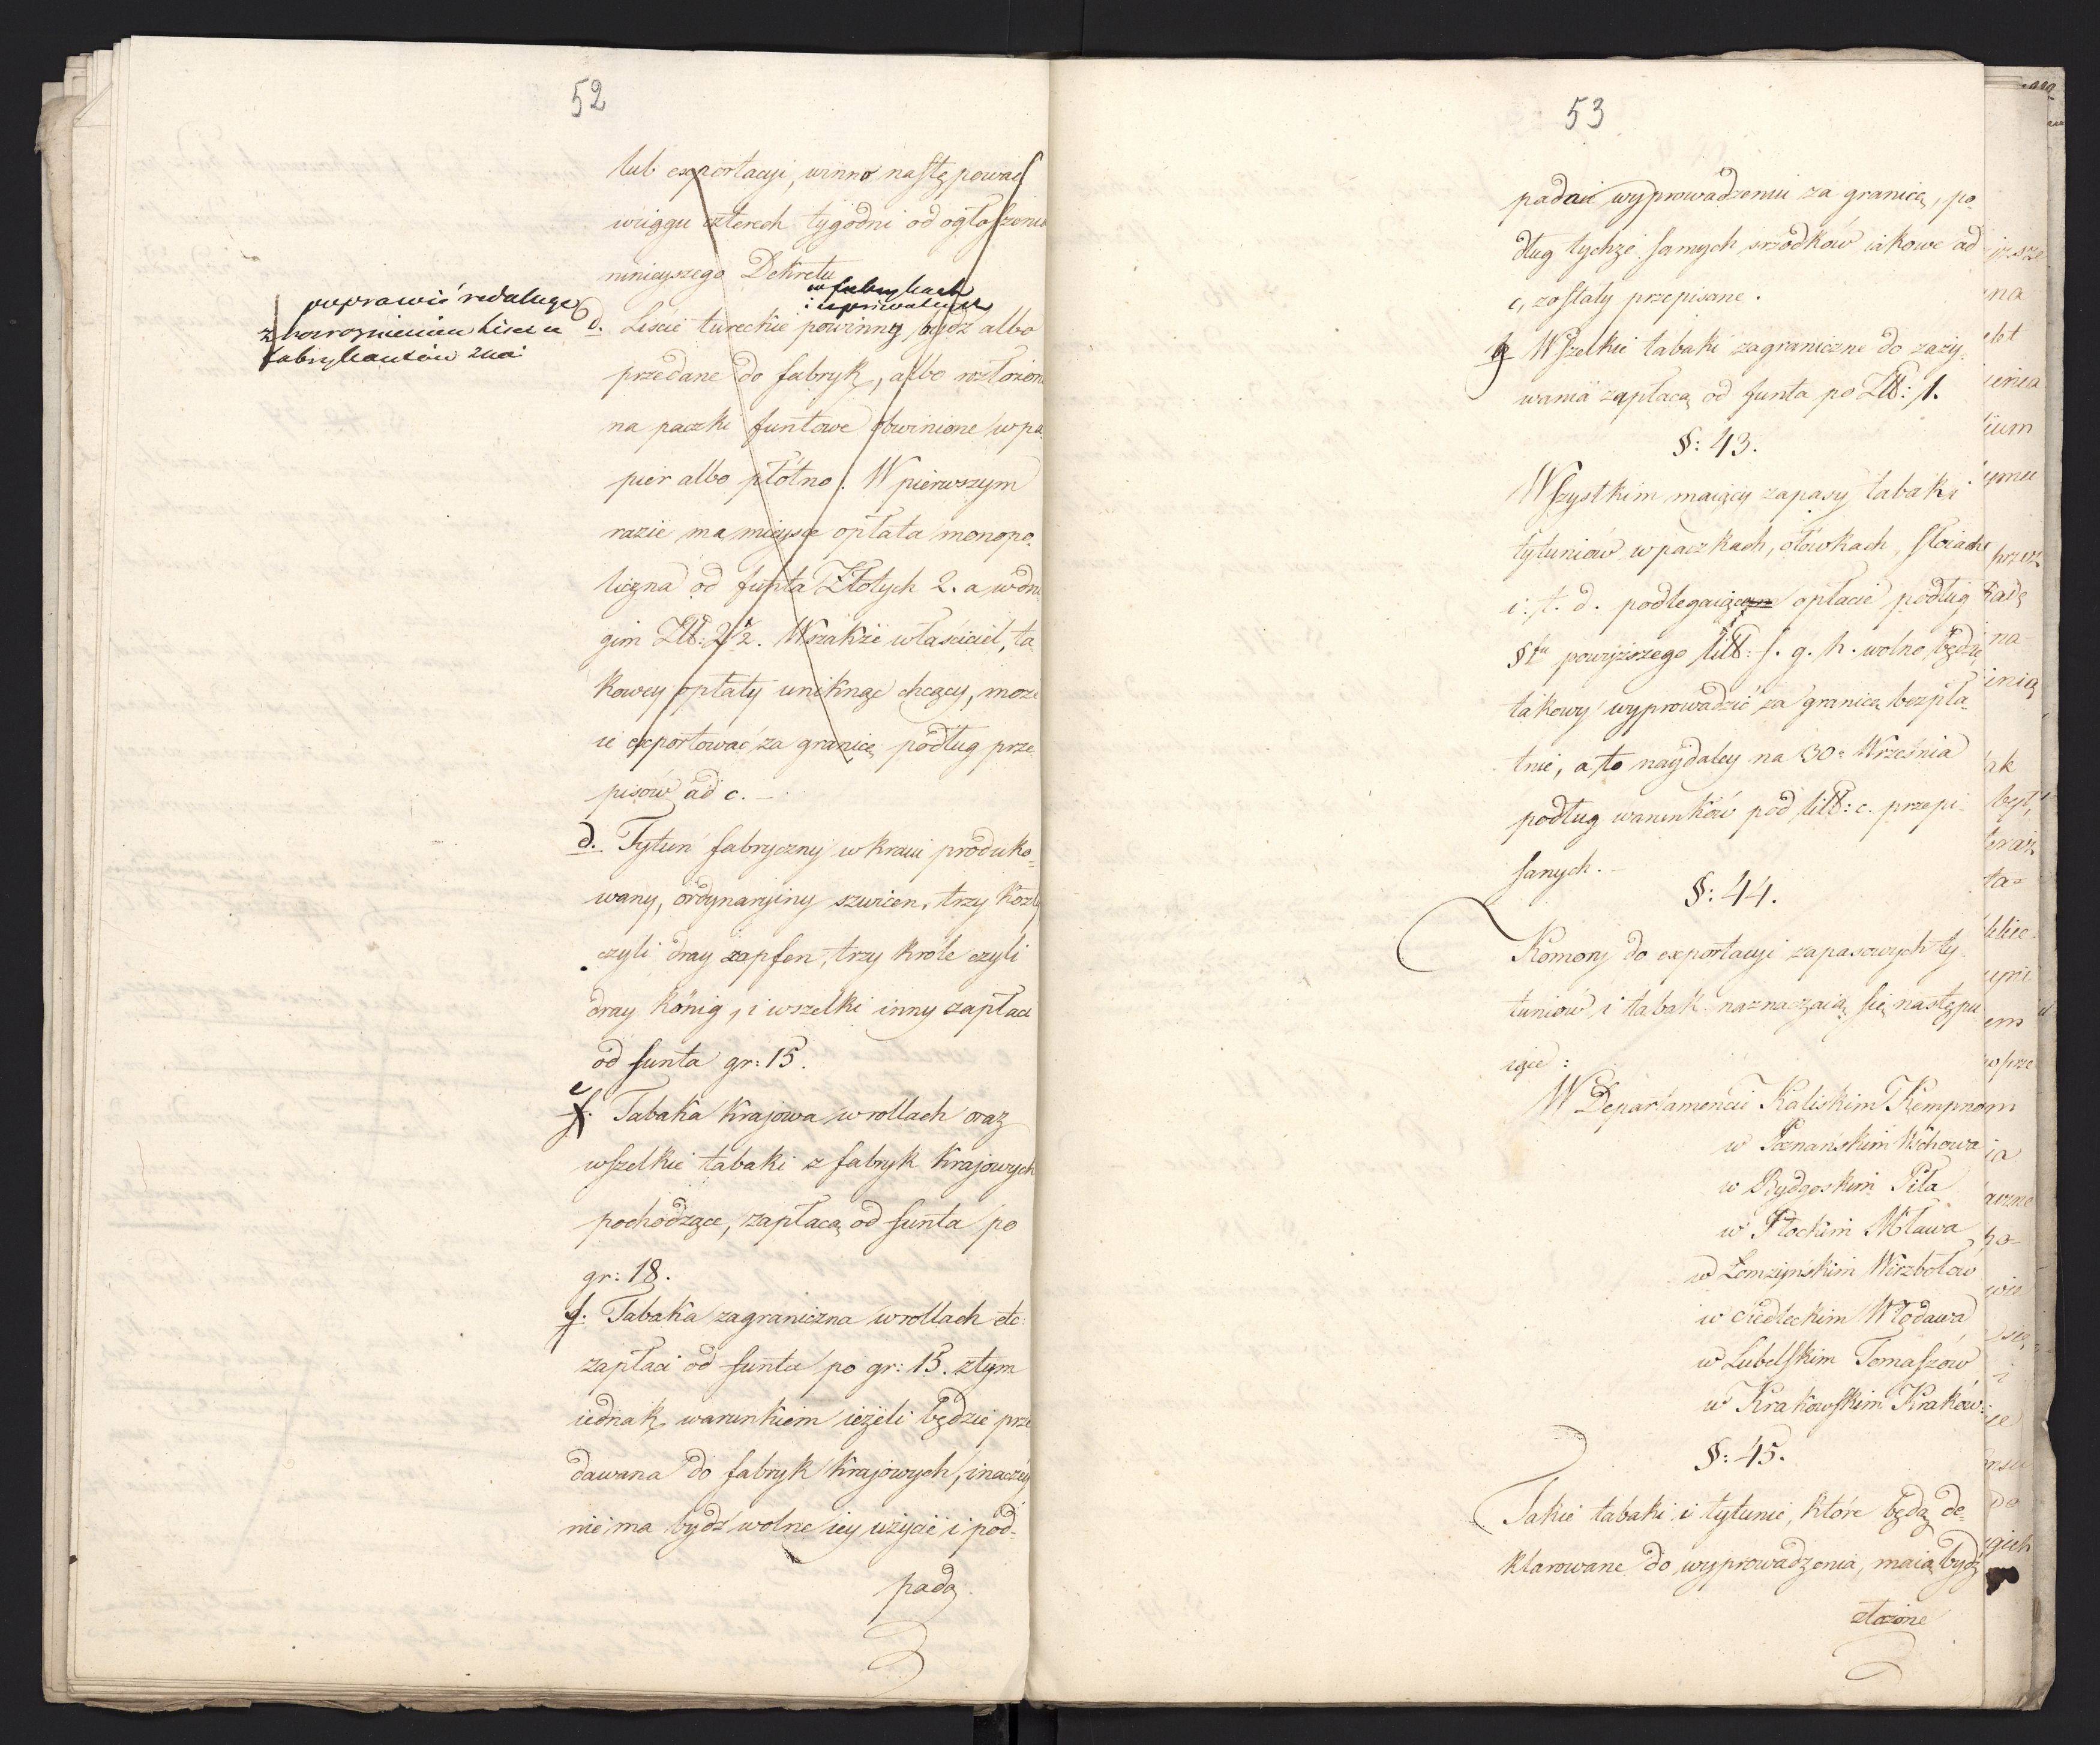 52
lub exportacyi, winno następować
wciągu czterech tygodni od ogłoszenia
ninieyszego Dekretu
w fabrykach
poprawić redakcye
d. Liście tureckie powinny bydź albo
przedane do fabryk, albo rozłożone
na paczki funtowe obwinione w pa-
pier albo płótno. W pierwszym
razie ma mieysce opłata monopo-
liczna od funta Złotych 2. a w dru-
gim Złt: 2 1/2. Wszakże właściciel, ta-
kowey opłaty uniknąć chcący, może
ie exportować za granicę podług prze-
pisów ad c. -
d. Tytuń fabryczny w kraiu produko-
wany, ordynaryiny szwicen, trzy kozły
czyli dray zapfen, trzy krole czyli
dray könig, i wszelki inny zapłaci
od funta gr: 15.
e
f. Tabaka krajowa w rollach oraz
wszelkie tabaki z fabryk krajowych
pochodzące, zapłacą od funta po
gr: 18.
f. Tabaka zagraniczna w rollach etc:
zapłaci od funta po gr: 15. z tym
iednak warunkiem ieżeli będzie prze
dawana do fabryk krajowych, inaczéy
nie ma bydź wolne iey użycie i pod-
pada
53
padać wyprowadzeniu za granicę, po-
dług tychże samych srzodków iakowe ad
c, zostały przepisane.
g Wszelkie tabaki zagraniczne do zaży-
wania zapłacą od funta po Złt: 1.
§: 43.
Wszystkim maiący zapasy tabaki
tytuniów w paczkach, ołówkach, słoiach
i. t. d. podlegaiącym opłacie podług
§fu powyższego litt: f. g. h. wolno będzie
takowy wyprowadzić za granicę bezpła-
tnie, a to naydaley na 30. Września
podług warunków pod litt: c. przepi-
sanych. -
§: 44.
Komory do exportacyi zapasowych ty-
tuniów i tabak naznaczaią się następu
iące:
W Departamencie Kaliskim Kempno
w Poznańskim Wschowa
w Bydgoskim Piła
w Płockim Mława
w Łomzyńskim Wierzbołów
w Siedleckim Włodawa
w Lubelskim Tomaszów
w Krakowskim Kraków.
§: 45.
Takie tabaki i tytunie, które będą de-
klarowane do wyprowadzenia, maią bydź
złożone